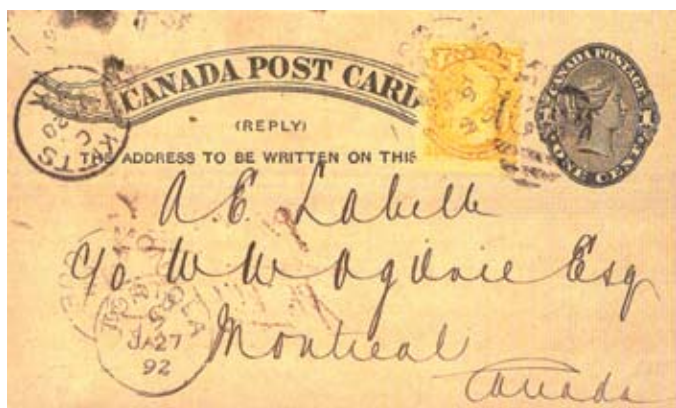 CANADA POST CARD
(REPLY)
THE ADDRESS TO BE WRITTEN ON THIS
CANADA POSTAGE
ONE CENT
A. E. Labelle
c/o W W Ogilvie Esq
Montreal
Canada
JA 27
92